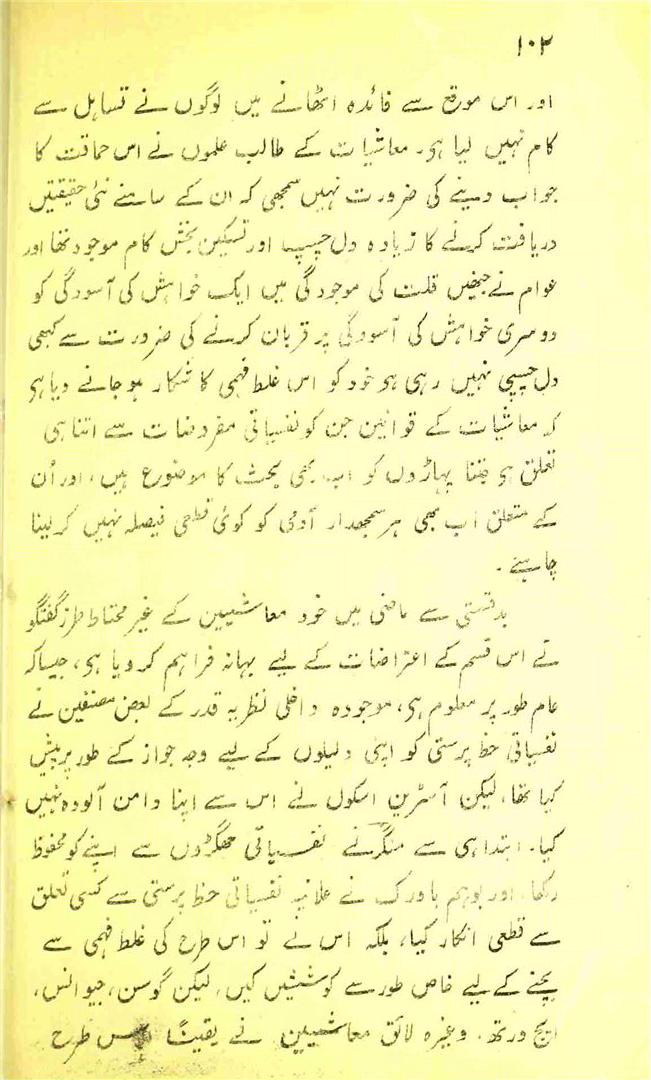 ۱۰۲
اور اس موقع سے فائدہ اٹھانے میں لوگوں نے تساہل سے
کام نہیں لیا ہی۔ معاشیات کے طالب علموں نے اس حماقت کا
جواب دینے کی ضرورت نہیں سمجھی کہ ان کے سامنے نئی حقیقتیں
دریافت کرنے کا زیادہ دل چسپ اور تسکین بخش کام موجود تھا اور
عوام نے جنھیں قلت کی موجودگی میں ایک خواہش کی آسودگی کو
دوسری خواہش کی آسودگی پر قربان کرنے کی ضرورت سے کبھی
دل چسپی نہیں رہی ہو خود کو اس غلط فہمی کا شکار ہو جانے دیا ہی
کہ معاشیات کے قوانین جن کو نفسیاتی مفروضات سے اتنا ہی
تعلق ہو جتنا پہاڑوں کو اب بھی بحث کا موضوع ہیں، اور اُن
کے متعلق اب بھی ہر سمجھدار آدمی کو کوئی قطعی فیصلہ نہیں کر لینا
چاہیئے۔
بدقسمتی سے ماضی میں خود معاشیین کے غیر محتاط طرز گفتگو
نے اس قسم کے اعتراضات کے لیے بہانہ فراہم کر دیا ہی، جیسا کہ
عام طور پر معلوم ہی، موجودہ داخلی نظریہ قدر کے بعض مصنفین نے
نفسیاتی حظ پرستی کو اپنی دلیلوں کے لیے وجہ جواز کے طور پر پیش
کیا تھا، لیکن آسٹرین اسکول نے اس سے اپنا دامن آلودہ نہیں
کیا۔ ابتدا ہی سے منگر نے نفسیاتی جھگڑوں سے اپنے کو محفوظ
رکھا۔ اور بوہم باورک نے علانیہ نفسیاتی حظ پرستی سے کسی تعلق
سے قطعی انکار کیا، بلکہ اس نے تو اس طرح کی غلط فہمی سے
بچنے کے لیے خاص طور سے کوششیں کیں۔ لیکن گوسن، جیوانس،
ایج ورتھ۔ وغیرہ لائق معاشیین نے یقیناً جس طرح